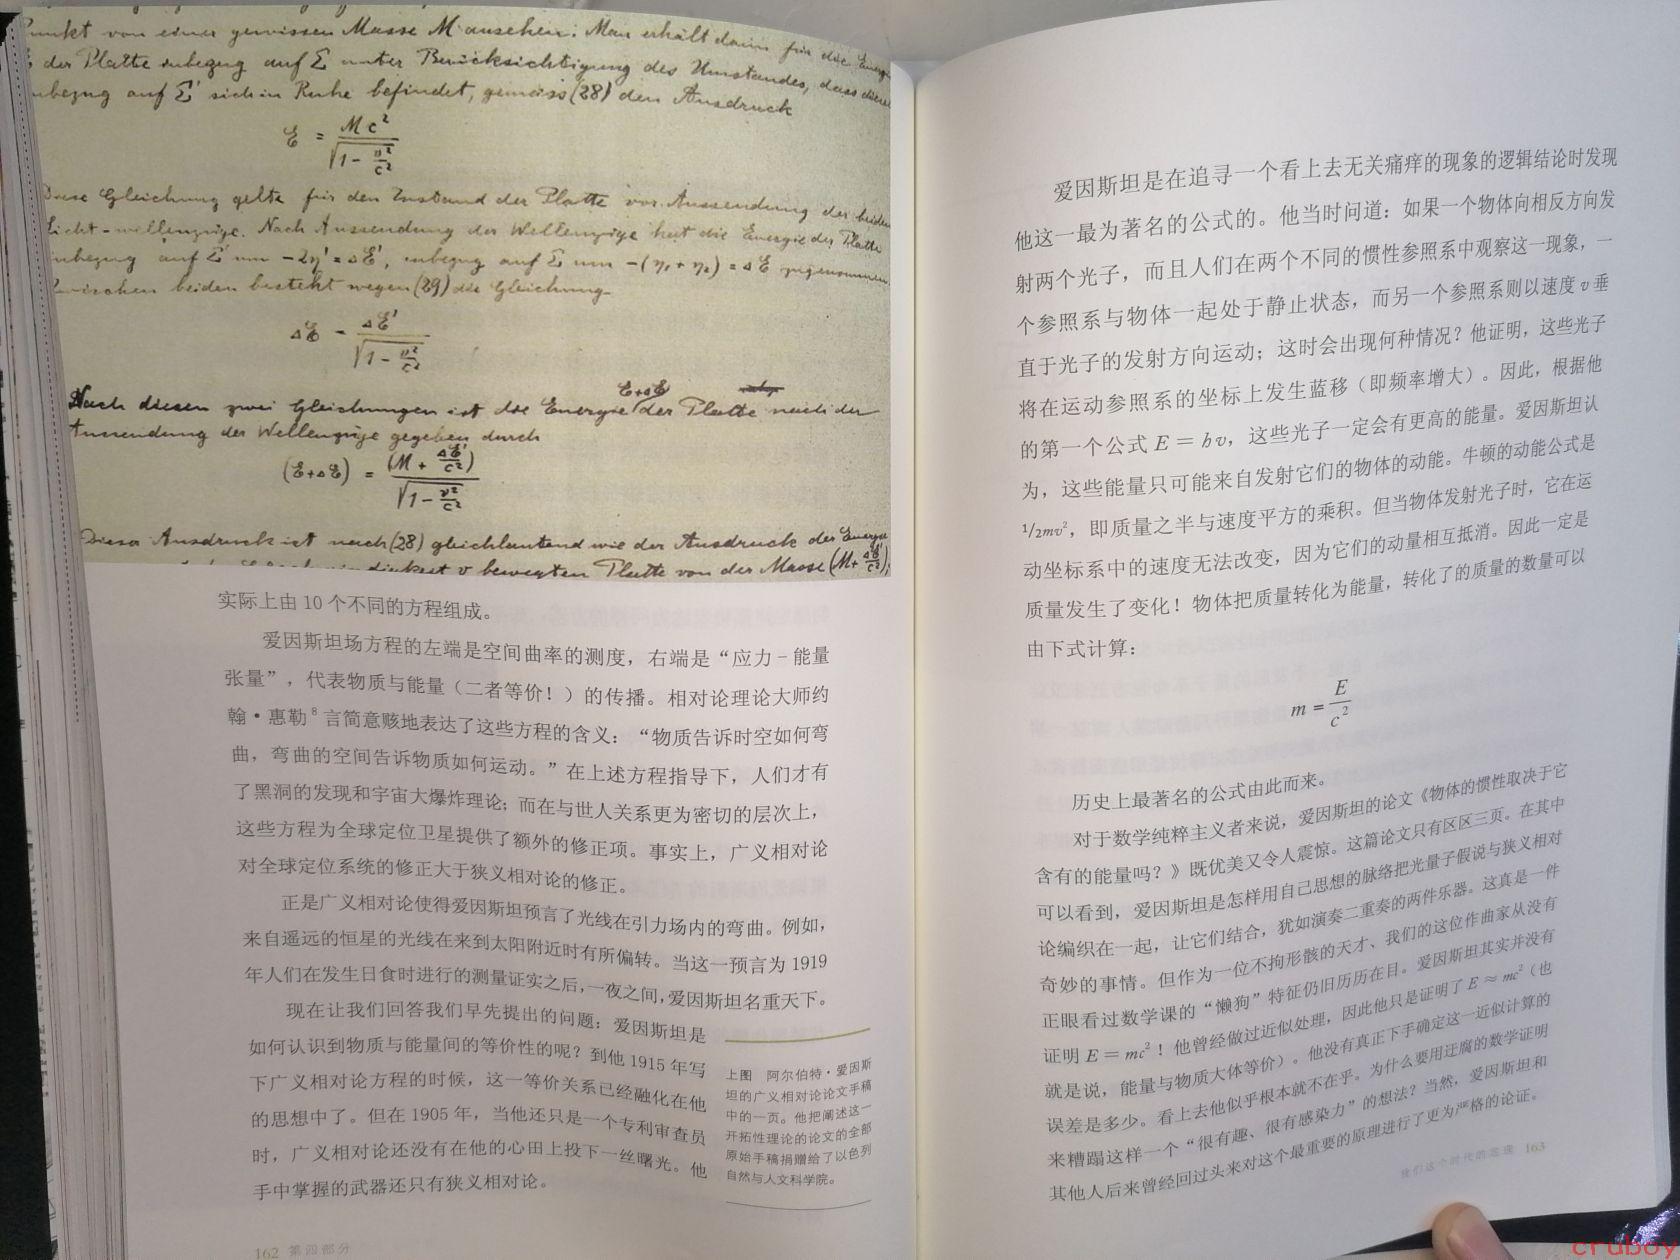 Punkt von einer gewissen Masse M ansehen. Man erhält dann für die Energie
der Platte inbezug auf Σ unter Berücksichtigung des Umstandes, dass diese
inbezug auf Σ' sich in Ruhe befindet, gemäss (28) den Ausdruck
E = Mc² / √(1 - v²/c²)
Diese Gleichung gelte für den Zustand der Platte vor Aussendung der beiden
Licht-wellenzüge. Nach Aussendung der Wellenzüge hat die Energie der Platte
inbezug auf Σ' um -2η' = ΔE', inbezug auf Σ um -(η₁ + η₂) = ΔE zugenommen
Zwischen beiden besteht wegen (29) die Gleichung
ΔE = ΔE' / √(1 - v²/c²)
Nach diesen zwei Gleichungen ist die Energie E+ΔE der Platte nach der
Aussendung der Wellenzüge gegeben durch
(E+ΔE) = (M + ΔE'/c²) / √(1 - v²/c²)
Dieser Ausdruck ist nach (28) gleichlautend wie der Ausdruck der Energie
v bewegten Platte von der Masse (M + ΔE'/c²)
实际上由 10 个不同的方程组成。
爱因斯坦场方程的左端是空间曲率的测度，右端是“应力－能量
张量”，代表物质与能量（二者等价！）的传播。相对论理论大师约
翰·惠勒⁸言简意赅地表达了这些方程的含义：“物质告诉时空如何弯
曲，弯曲的空间告诉物质如何运动。”在上述方程指导下，人们才有
了黑洞的发现和宇宙大爆炸理论；而在与世人关系更为密切的层次上，
这些方程为全球定位卫星提供了额外的修正项。事实上，广义相对论
对全球定位系统的修正大于狭义相对论的修正。
正是广义相对论使得爱因斯坦预言了光线在引力场内的弯曲。例如，
来自遥远的恒星的光线在来到太阳附近时有所偏转。当这一预言为 1919
年人们在发生日食时进行的测量证实之后，一夜之间，爱因斯坦名重天下。
现在让我们回答我们早先提出的问题：爱因斯坦是
如何认识到物质与能量间的等价性的呢？到他 1915 年写
下广义相对论方程的时候，这一等价关系已经融化在他
的思想中了。但在 1905 年，当他还只是一个专利审查员
时，广义相对论还没有在他的心田上投下一丝曙光。他
手中掌握的武器还只有狭义相对论。
上图 阿尔伯特·爱因斯
坦的广义相对论论文手稿
中的一页。他把阐述这一
开拓性理论的论文的全部
原始手稿捐赠给了以色列
自然与人文科学院。
162 第四部分
爱因斯坦是在追寻一个看上去无关痛痒的现象的逻辑结论时发现
他这一最为著名的公式的。他当时问道：如果一个物体向相反方向发
射两个光子，而且人们在两个不同的惯性参照系中观察这一现象，一
个参照系与物体一起处于静止状态，而另一个参照系则以速度 v 垂
直于光子的发射方向运动；这时会出现何种情况？他证明，这些光子
将在运动参照系的坐标上发生蓝移（即频率增大）。因此，根据他
的第一个公式 E = hv，这些光子一定会有更高的能量。爱因斯坦认
为，这些能量只可能来自发射它们的物体的动能。牛顿的动能公式是
1/2mv²，即质量之半与速度平方的乘积。但当物体发射光子时，它在运
动坐标系中的速度无法改变，因为它们的动量相互抵消。因此一定是
质量发生了变化！物体把质量转化为能量，转化了的质量的数量可以
由下式计算：
m = E/c²
历史上最著名的公式由此而来。
对于数学纯粹主义者来说，爱因斯坦的论文《物体的惯性取决于它
含有的能量吗？》既优美又令人震惊。这篇论文只有区区三页。在其中
可以看到，爱因斯坦是怎样用自己思想的脉络把光量子假说与狭义相对
论编织在一起，让它们结合，犹如演奏二重奏的两件乐器。这真是一件
奇妙的事情。但作为一位不拘形骸的天才、我们的这位作曲家从没有
正眼看过数学课的“懒狗”特征仍旧历历在目。爱因斯坦其实并没有
证明 E = mc²！他曾经做过近似处理，因此他只是证明了 E ≈ mc²（也
就是说，能量与物质大体等价）。他没有真正下手确定这一近似计算的
误差是多少。看上去他似乎根本就不在乎。为什么要用迂腐的数学证明
来糟蹋这样一个“很有趣、很有感染力”的想法？当然，爱因斯坦和
其他人后来曾经回过头来对这个最重要的原理进行了更为严格的论证。
我们这个时代的 163
cruboy